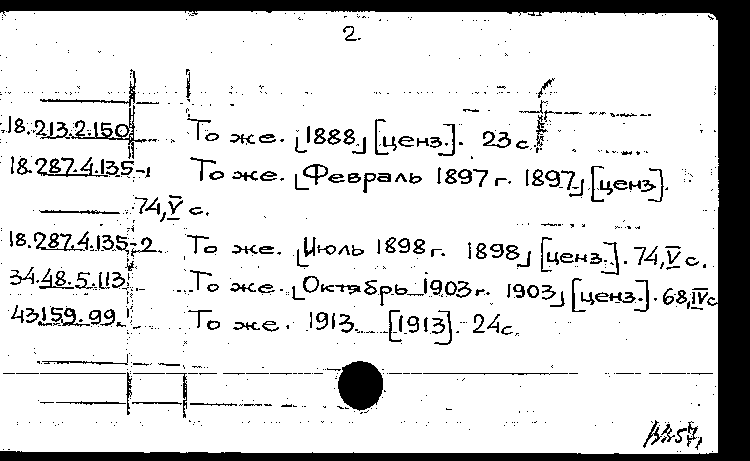 2.
18.213.2.150 То же. ⌊1888⌋ [ценз.]. 23 с.
18.287.4.135-1 То же. ⌊Февраль 1897 г. 1897⌋ [ценз].
74, V с.
18.287.4.135-2 То же. ⌊Июль 1898 г. 1898⌋ [ценз.]. 74, V с.
34.48.5.113 То же. ⌊Октябрь 1903 г. 1903⌋ [ценз.]. 68, IV с
43.159.99. То же. 1913. [1913]. 24 с.